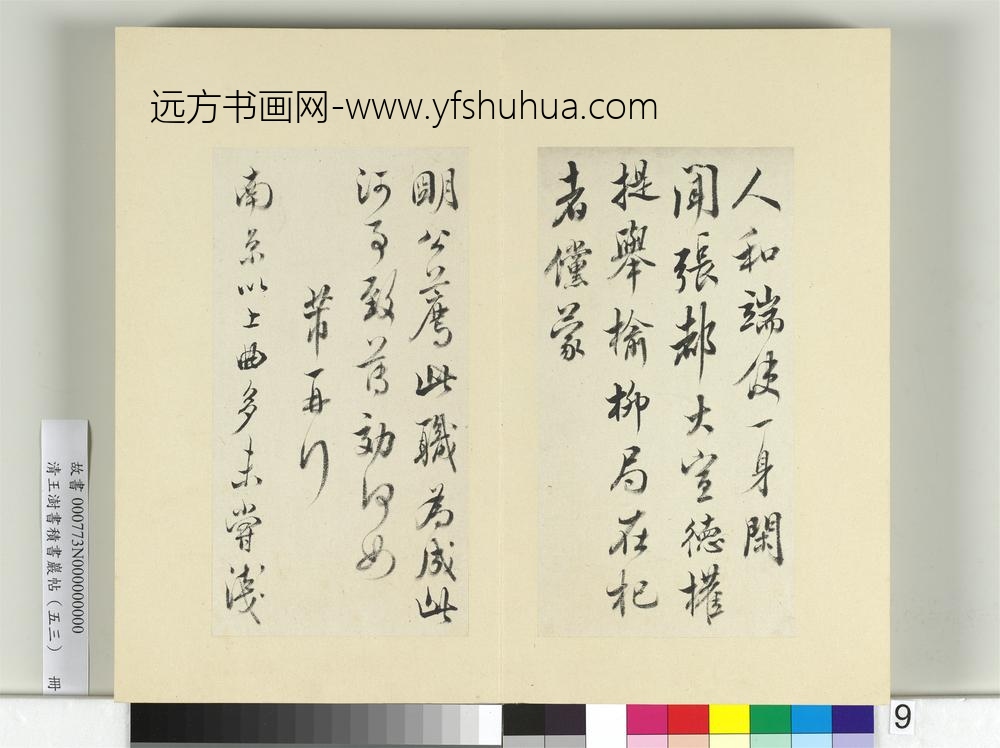 远方书画网-www.yfshuhua.com
人和端使一身閑
聞張都大宣德權
提舉揄柳局在杞
者儻蒙
明公薦此職為成此
河事致薦効何如
芾再行
南京以上曲多未嘗淺
故書 000773N000000000
清王澍書積書巖帖(五三) 冊
9